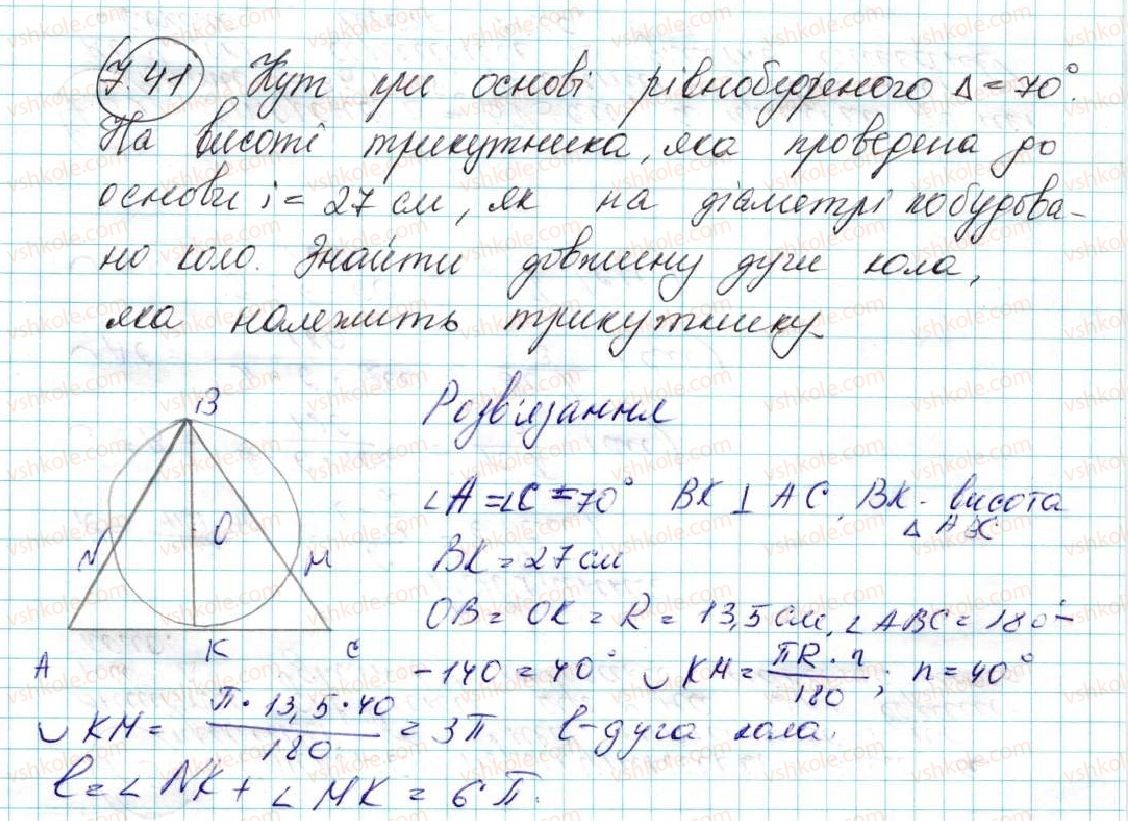 7.41 Кут при основі рівнобедреного Δ = 70°.
На висоті трикутника, яка проведена до
основи і = 27 см, як на діаметрі побудова-
но коло. Знайти довжину дуги кола,
яка належить трикутнику
Розв'язання
B
O
N
M
A
K
C
∠A = ∠C = 70° BK ⊥ AC, BK - висота
Δ ABC
BK = 27 см
OB = OK = R = 13,5 см, ∠ABC = 180° -
- 140 = 40° ◡ KM = πR · n / 180 ; n = 40°
◡ KM = π · 13,5 · 40 / 180 = 3π ℓ - дуга кола.
ℓ = ∠ NK + ∠ MK = 6π.
vshkole.com